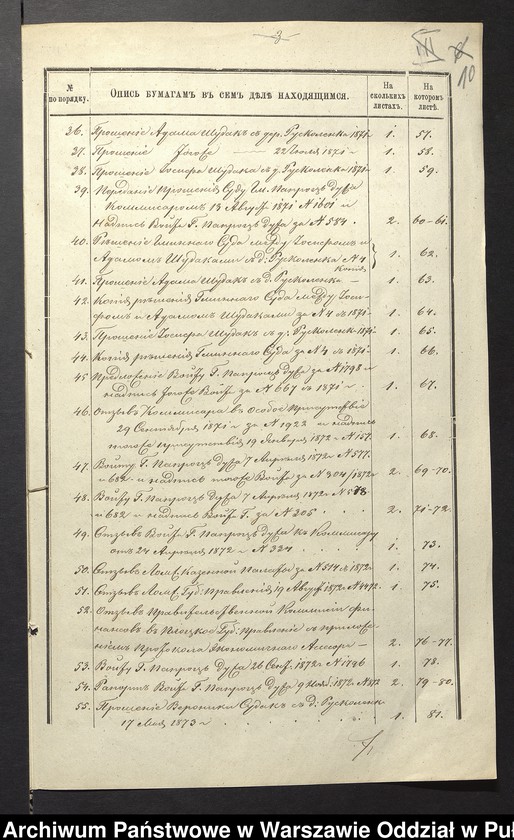 3
III
10
№ по порядку.
Опись бумагамъ въ семъ дѣлѣ находящимся.
На сколькихъ листахъ.
На которомъ листѣ.
36. Прошеніе Адама Шудакъ съ дер. Русколенка 1871 г. 1. 57.
37. Прошеніе 22 Іюля 1871 г. 1. 58.
38. Прошеніе Іосифа Шудака съ д. Русколенка 1871 г. 1. 59.
39. Прошенія Суду Гм.
Коммисаромъ 13 Августа 1871 N 1601 и
Надпись Войта Г. за № 584. 2. 60-61.
40. Рѣшеніе Гминнаго Суда между Іосифомъ и
Адамомъ Шудаками съ д. Русколенка № 4 1. 62.
Копія
41. Прошеніе Адама Шудакъ съ д. Русколенка 1. 63.
42. Копія рѣшенія Гминнаго Суда между Іоси-
фомъ и Адамомъ Шудаками за № 4 съ 1871 г. 1. 64.
43. Прошеніе Іосифа Шудакъ съ д. Русколенк. 1871 г. 1. 65.
44. Копія рѣшенія Гминнаго Суда за № 4 съ 1871 г. 1. 66.
45. Предложеніе Войту Г. за № 1798 и
надпись Войта за № 667 съ 1871 г. 1. 67.
46. Отзывъ Коммисара въ Особое Присутствіе
29 Сентября 1871 г. за № 1922 и надпись
присутствія 19 Января 1872 г. № 157. 1. 68.
47. Войту Г. 7 Апрѣля 1872 г. № 577.
и 682 и надпись Войта за № 304/1872 г. 2. 69-70.
48. Войту Г. 7 Апрѣля 1872 г. № 578
и 682 и надпись Войта Г. за № 305 2. 71-72.
49. Отзывъ Войта Г. къ Коммисару
отъ 24 Апрѣля 1872 г. № 324 1. 73.
50. Отзывъ Казенной Палаты за № 514 1872 г. 1. 74.
51. Отзывъ Губ. Правленія 19 Августа 1872 № 4472. 1. 75.
52. Отзывъ Правительственной Коммисіи фи-
нансовъ въ Плоцкое Губ. Правленіе съ приложе-
ніемъ Протокола 2. 76-77.
53. Войту Г. 26 Сент. 1872 г. № 1796 1. 78.
54. Рапортъ Войта Г. 9 Нояб. 1872 № 872 2. 79-80.
55. Прошеніе Вероники Судакъ съ д. Русколенк.
17 Мая 1873 г. 1. 81.
Archiwum Państwowe w Warszawie Oddział w Puł